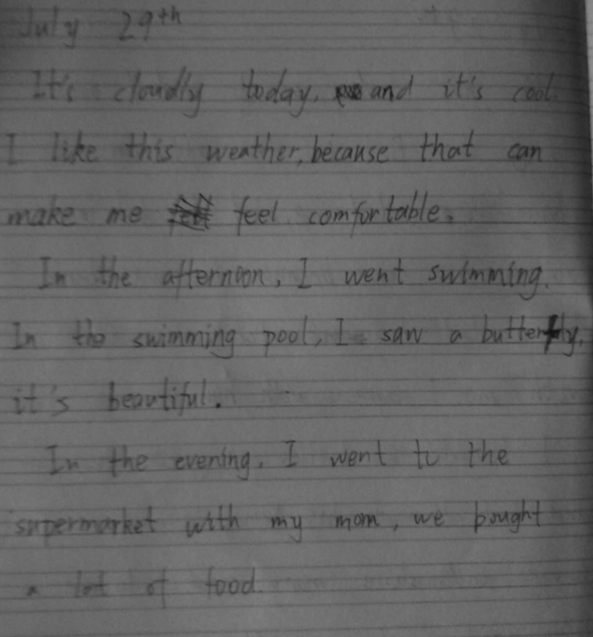 July 29th
It's cloudly today, and it's cool.
I like this weather, because that can
make me feel comfortable.
In the afternoon, I went swimming.
In the swimming pool, I saw a butterfly,
it's beautiful.
In the evening, I went to the
supermarket with my mom, we bought
a lot of food.